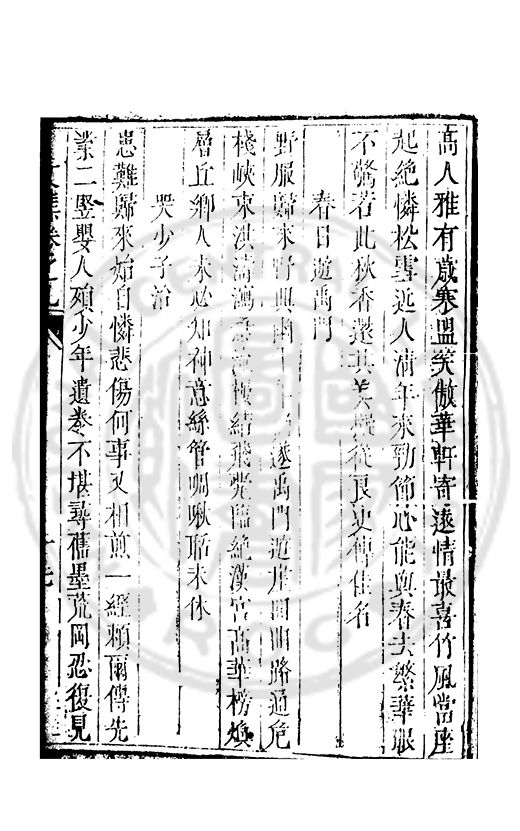 高人雅有歲寒盟笑傲華軒寄遠情最喜竹風當座
起絶憐松雪近人清年來勁節心能與春去繁華眼
不驚若此秋香還其美從良史傳佳名
春日遊禹門
野服歸來野興幽遂禹門遊崖回曲路通危
棧峽束洪濤瀉結飛甍臨絶漢宮高華榜煥
層丘鄉人未必知神意絲管啁啾聒未休
哭少子治
患難歸來始自憐悲傷何事又相煎一經賴爾傳先
業二豎嬰人殞少年遺巻不堪尋舊墨荒岡忍復見
文集卷之九